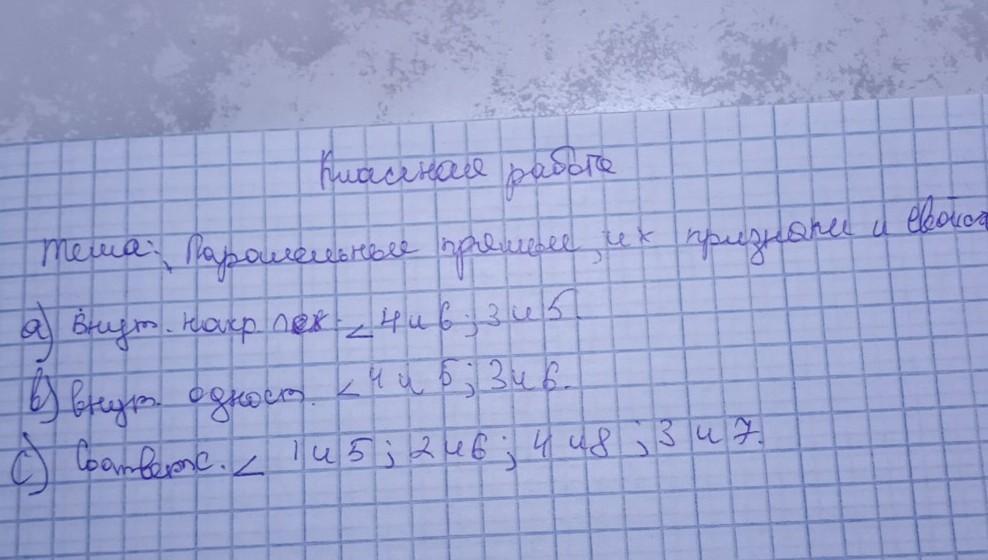 Класная работа
Тема: Паралельные прямые, их признаки и свойст
а) Внут. накр леж ∠ 4 и 6; 3 и 5.
b) внут. одност. ∠ 4 и 5; 3 и 6.
c) Соответс. ∠ 1 и 5; 2 и 6; 4 и 8; 3 и 7.